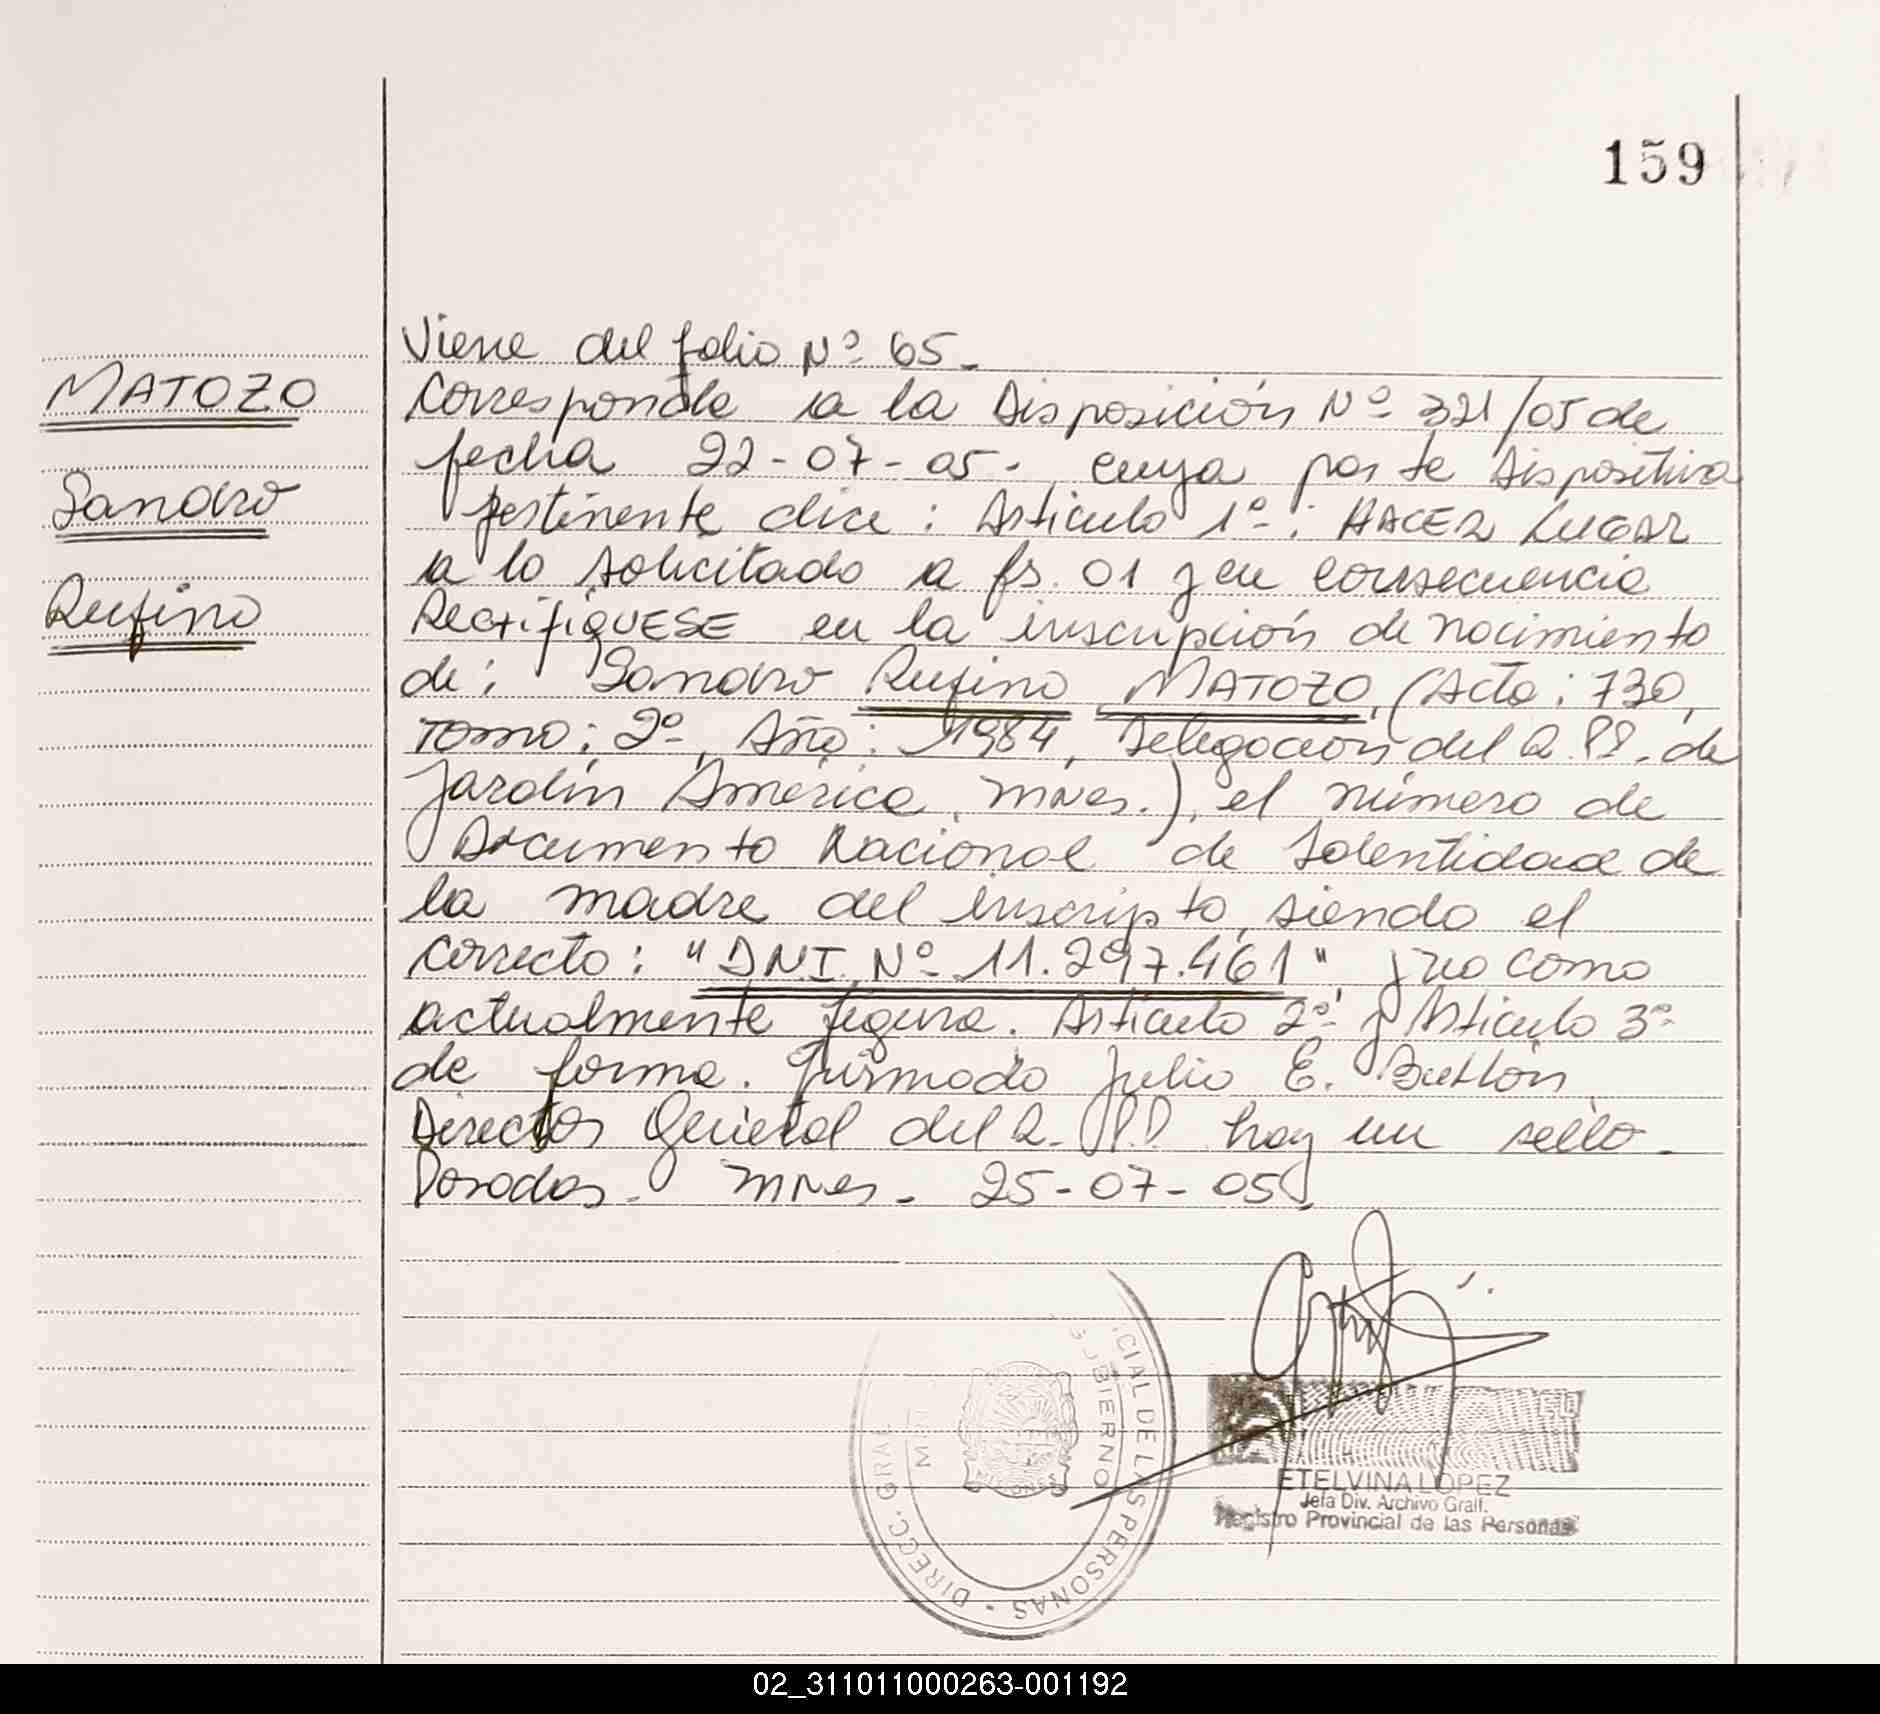 159
Viene del folio Nº 65.
MATOZO
Corresponde a la Disposición Nº 321/05 de
fecha 22-07-05. cuya parte dispositiva
Sandro
pertinente dice: Artículo 1º: HACER LUGAR
a lo solicitado a fs. 01 y en consecuencia
Rufino
RECTIFIQUESE en la inscripción de nacimiento
de: Sandro Rufino MATOZO, (Acta: 730,
Tomo: 2º, Año: 1984, Delegación del R.PP. de
Jardín América, Mnes.), el número de
Documento Nacional de Identidad de
la madre del inscripto, siendo el
correcto: "DNI. Nº 11.297.461" y no como
actualmente figura. Artículo 2º y Artículo 3º
de forma. Firmado Julio E.
Director General del R.P.P. hay un sello.
Posadas. Mnes. 25-07-05
DIRECC. GRAL CIAL DE LAS PERSONAS
GUBIERNO
ETELVINA LOPEZ
Jefa Div. Archivo Gral.
Registro Provincial de las Personas
02_311011000263-001192